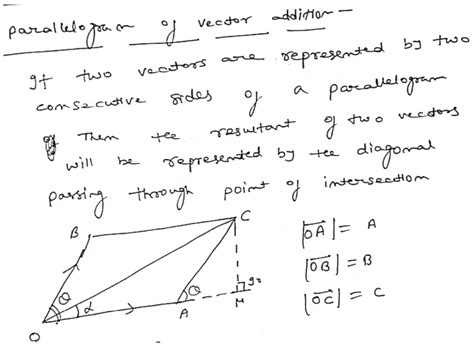 parallelogram of vector addition -
If two vectors are represented by two
consecutive sides of a parallelogram
Then the resultant of two vectors
will be represented by the diagonal
passing through point of intersection
B
C
|OA| = A
|OB| = B
|OC| = C
θ
α
θ
90
O
A
M